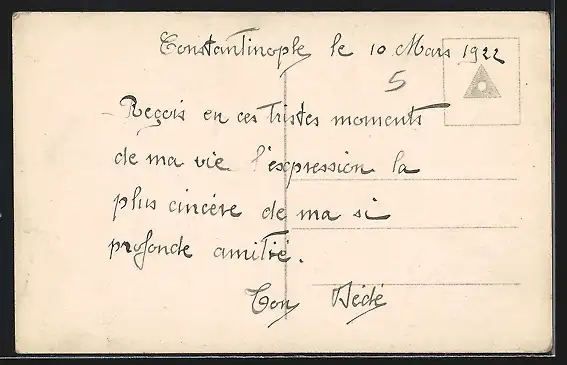 Constantinople le 10 Mars 1922
5
Reçois en ces tristes moments
de ma vie l'expression la
plus cincére de ma si
profonde amitié.
Ton Dédé